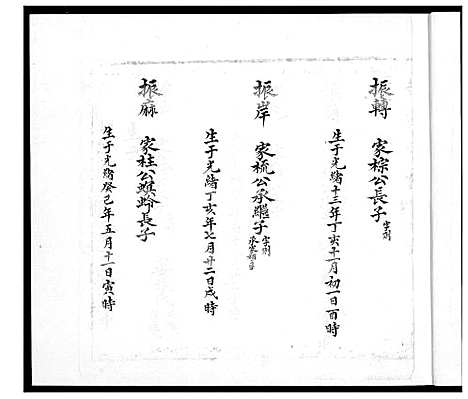 振轉 家棕公長子
生于光緒十三年丁亥十一月初一日酉時
振岸 家梳公承繼子
生于光緒丁亥年七月廿二日戌時
振麻 家柱公螟蛉長子
生于光緒癸巳年五月十一日寅時